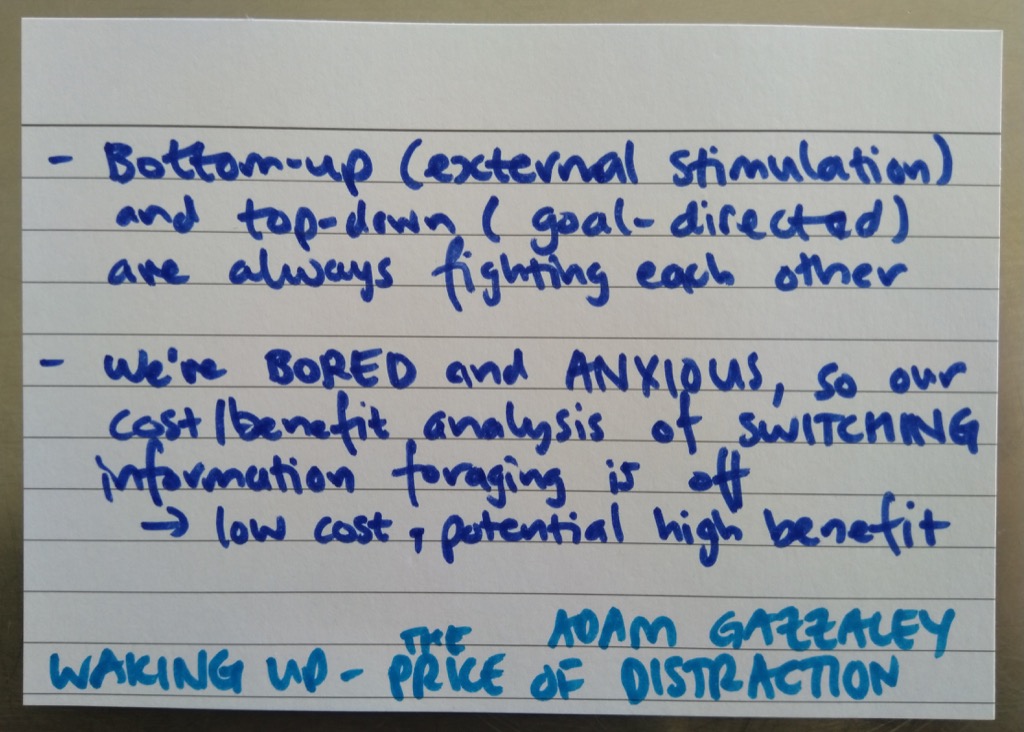 - Bottom-up (external stimulation)
and top-down (goal-directed)
are always fighting each other
- We're BORED and ANXIOUS, so our
cost/benefit analysis of SWITCHING
information foraging is off
→ low cost, potential high benefit
ADAM GAZZALEY
WAKING UP - THE PRICE OF DISTRACTION